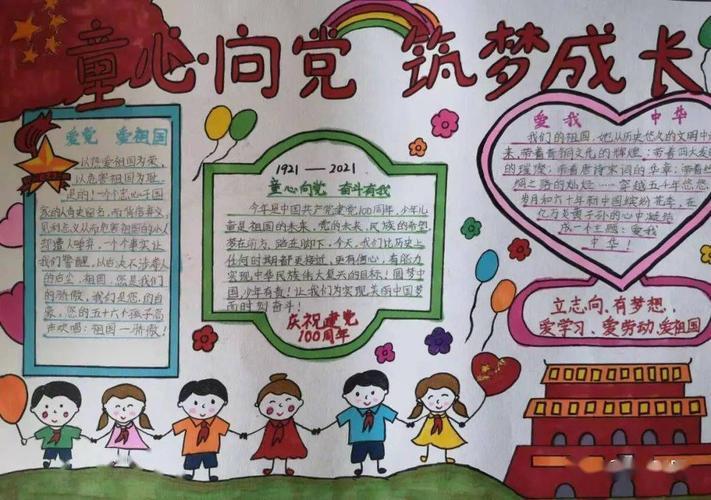 童心向党 筑梦成长
爱党 爱祖国
以热爱祖国为荣,
以危害祖国为耻
是的!一个忠心于国
家的人奇史留名,而背信弃义,
见利忘义从而危害祖国的小人
却遭人唾弃。一个个事实让
我们警醒,以古决不涉本人
的古尘,祖国,您是我们
的骄傲,我们是您的自
豪,您的五十六个孩子高
声欢唱:祖国一骄傲!
1921—2021
童心向党 奋斗有我
今年是中国共产党建党100周年,少年儿
童是祖国的未来,党的未来,民族的希望
梦在前方,路在脚下,今天,我们比历史上
任何时期都更接近,更有信心,有能力
实现中华民族伟大复兴的目标!圆梦中
国,少年有责!让我们为实现美丽中国梦
而时刻奋斗!
庆祝建党
100周年
爱我 中华
我们的祖国,她从历史悠久的文明中
来,带着青铜文化的辉煌;带着四大发
的璀璨;带着唐诗宋词的华章;带着丝
绸之路的灿烂……穿越五十年
岁月和六十年新中国缤纷光年,在
亿万炎黄子孙的心中凝结
成一个主题:爱我
中华!
立志向,有梦想,
爱学习、爱劳动,爱祖国